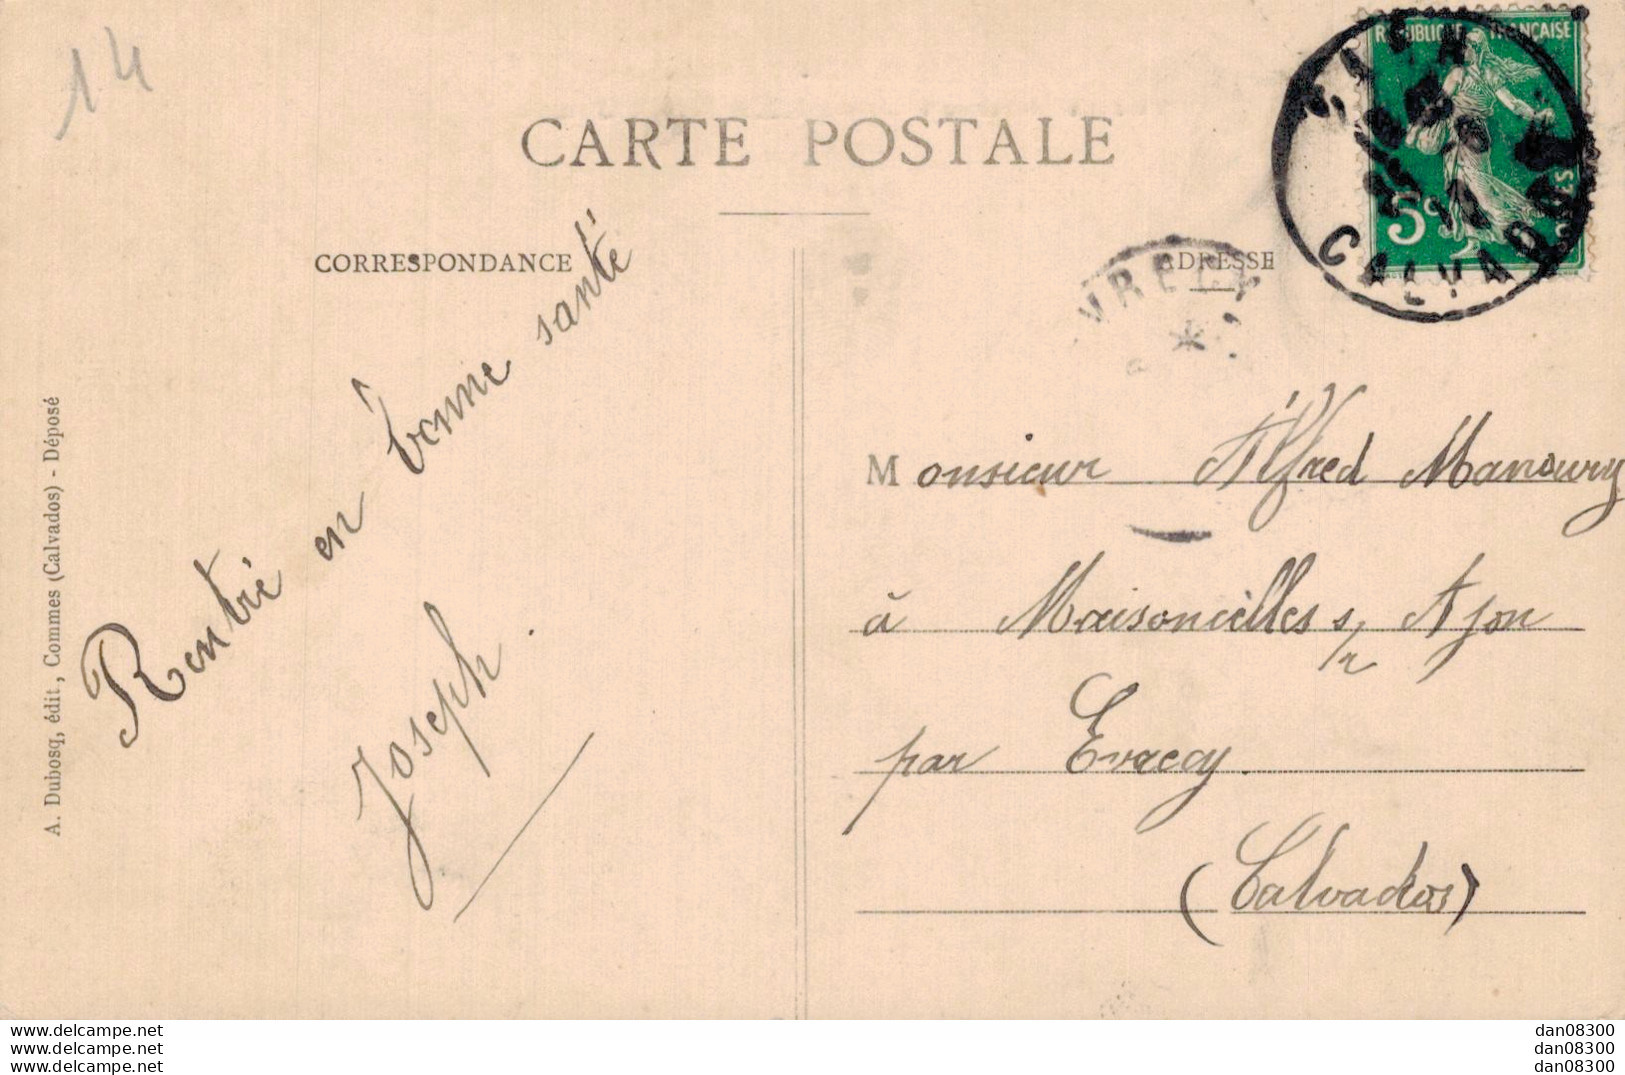 14
CARTE POSTALE
RÉPUBLIQUE FRANÇAISE
5c
CALVADOS
CORRESPONDANCE
ADRESSE
VRECY
Rentré en bonne santé
Joseph.
Monsieur Alfred Manoury
à Maisoncelles s/r Ajon
par Evrecy
(Calvados)
A. Dubosq, édit., Commes (Calvados) - Déposé
www.delcampe.net
www.delcampe.net
www.delcampe.net
dan08300
dan08300
dan08300